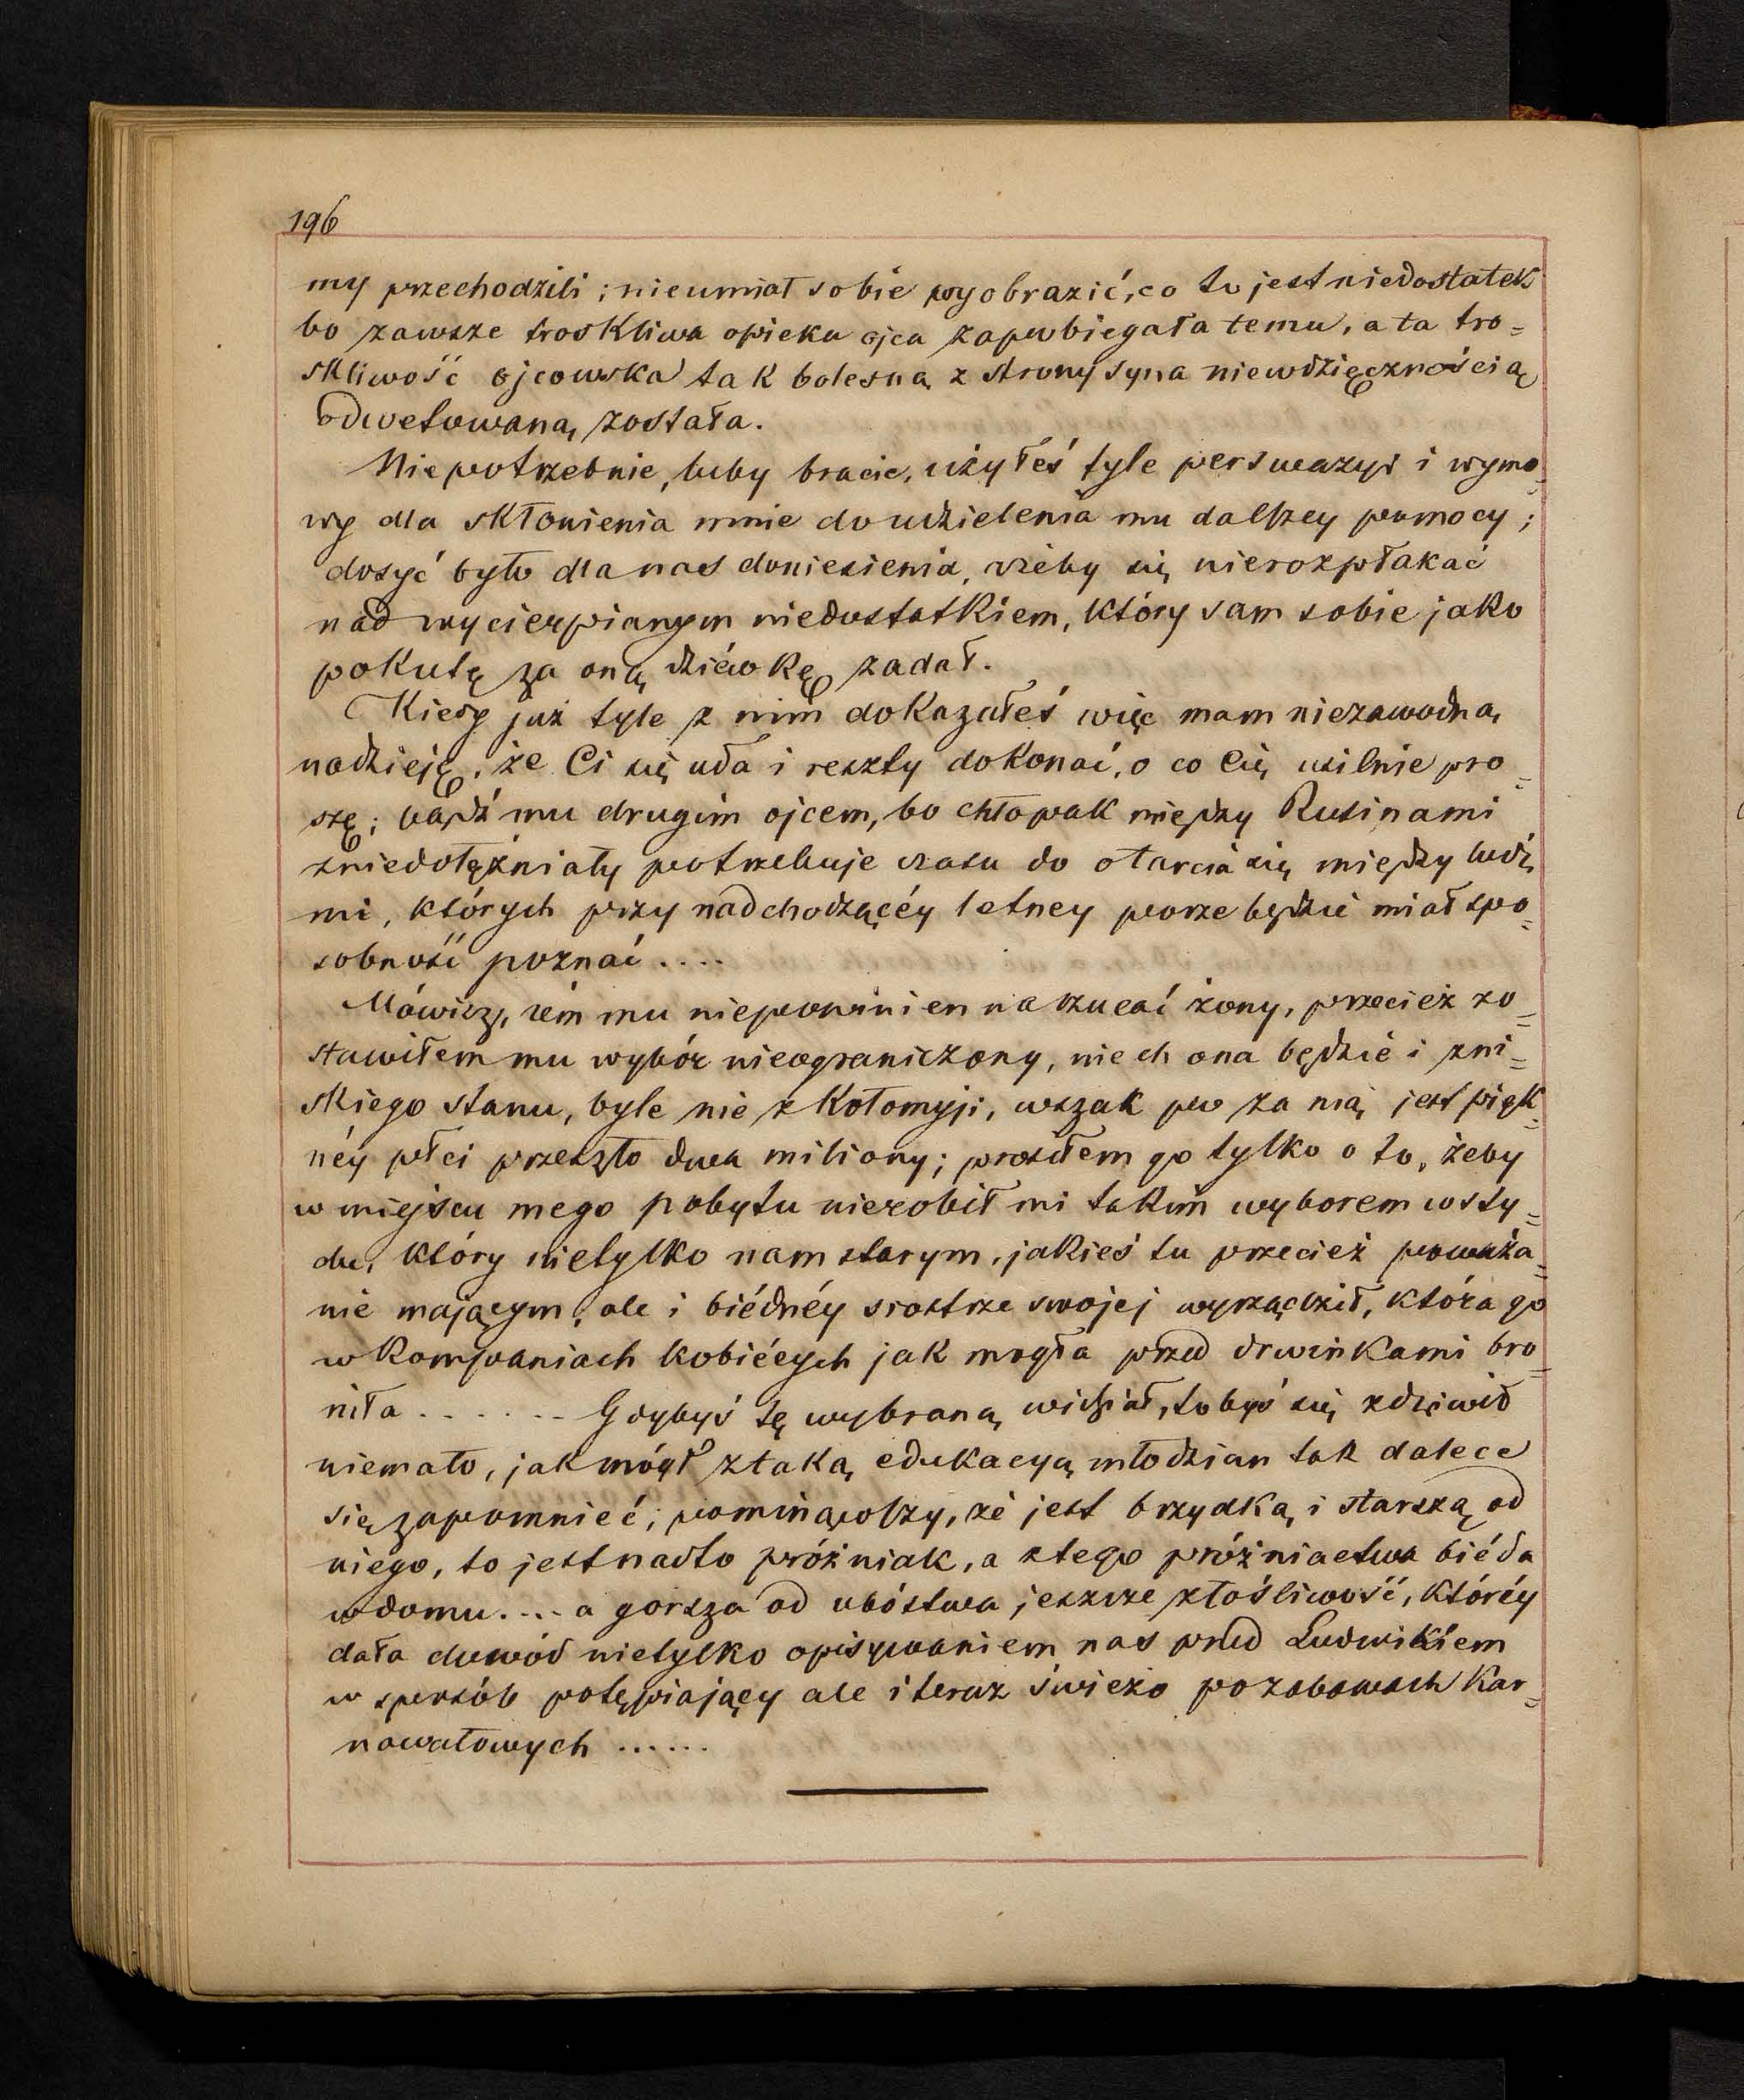 196
my przechodzili; nieumiał sobie wyobrazić, co to jest niedostatek
bo zawsze troskliwa opieka ojca zapobiegała temu, a ta tro=
skliwość ojcowska tak bolesną z strony syna niewdzięcznością
odwetowaną została.
Niepotrzebnie, luby bracie, użyłeś tyle perswazyi i wymo=
wy dla skłonienia mnie do udzielenia mu dalszey pomocy;
dosyć było dla nas doniesienia, żeby się nierozpłakać
nad wycierpianym niedostatkiem, który sam sobie jako
pokutę za oną dziéwkę zadał.
Kiedy już tyle z nim dokazałeś więc mam niezawodną
nadzieję, że Ci się uda i reszty dokonać, o co Cię usilnie pro=
szę; bądź mu drugim ojcem, bo chłopak między Rusinami
zniedołężniały potrzebuje czasu do otarcia się między ludź
mi, których przy nadchodzącéy letney porze będzie miał spo=
sobność poznać....
Mówisz, żem mu niepowinien narzucać żony, przecież zo=
stawiłem mu wybór nieograniczony, niech ona będzie i zni=
skiego stanu, byle nie z Kołomyji, wszak po za nią jest pięk=
néy płci przeszło dwa miliony; prosiłem go tylko o to, żeby
w miejscu mego pobytu nierobił mi takim wyborem wsty=
du, który nietylko nam starym, jakieś tu przecież poważa=
nie mającym, ale i biédnéy siostrze swojej wyrządził, która go
w kompaniach kobiécych jak mogła przed drwinkami bro=
niła....... Gdybyś tę wybraną widział, tobyś się zdziwił
niemało, jak mógł ztaką edukacyą młodzian tak dalece
się zapomnieć; pominąwszy, że jest brzydką i starszą od
niego, to jest nadto próżniak, a ztego próżniactwa biéda
w domu.... a gorsza od ubóstwa jeszcze złośliwość, któréy
dała dowód nietylko opisywaniem nas przed Ludwikiem
w sposób potępiający ale i teraz świeżo po zabawach kar=
nawałowych ......